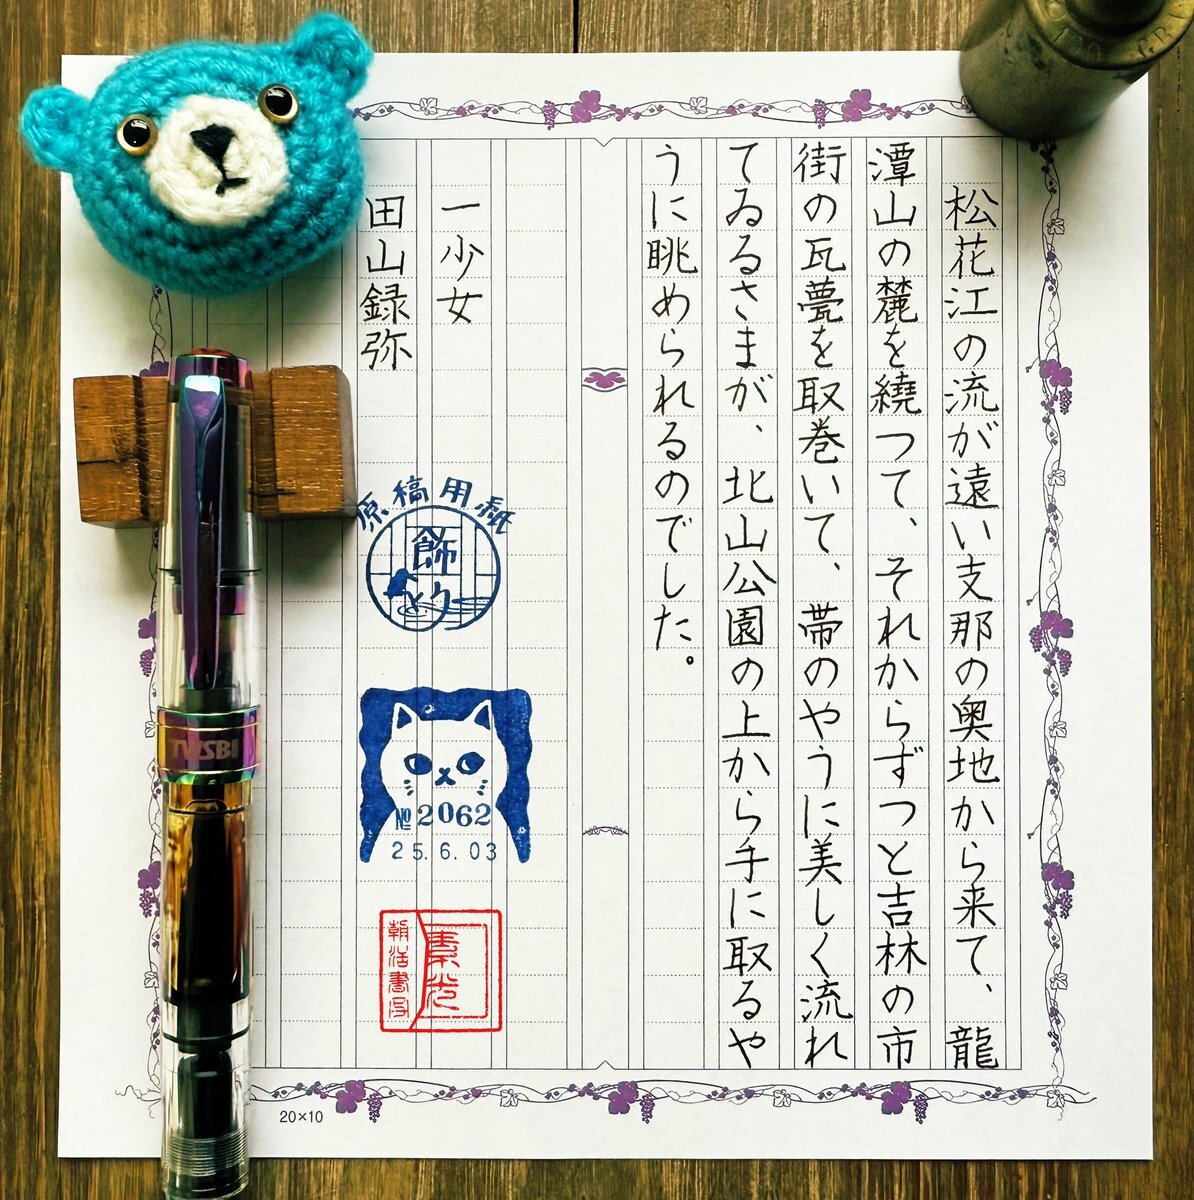 松花江の流が遠い支那の奥地から来て、龍
潭山の麓を繞つて、それからずつと吉林の市
街の瓦甍を取巻いて、帯のやうに美しく流れ
てゐるさまが、北山公園の上から手に取るや
うに眺められるのでした。
一少女
田山録弥
原稿用紙
飾
№2062
25.6.03
素光
朝活書写
TWSBI
20×10